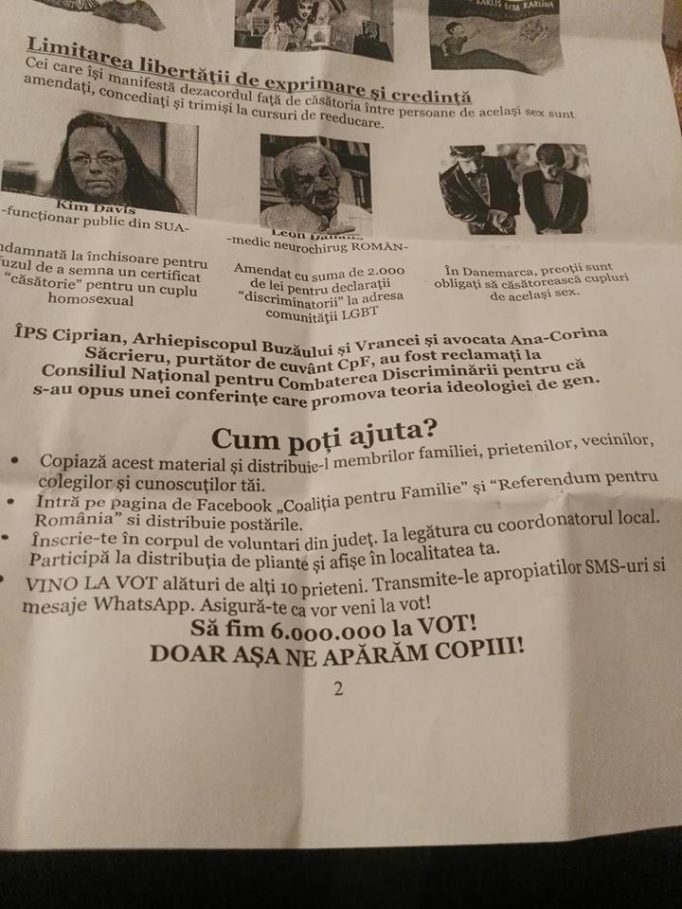 KARLIS BĒRA KARLĪNA
Limitarea libertății de exprimare și credință
Cei care își manifestă dezacordul față de căsătoria între persoane de același sex sunt
amendați, concediați și trimiși la cursuri de reeducare.
Kim Davis
-funcționar public din SUA-
ndamnată la închisoare pentru
fuzul de a semna un certificat
“căsătorie” pentru un cuplu
homosexual
Leon
-medic neurochirug ROMÂN-
Amendat cu suma de 2.000
de lei pentru declarații
“discriminatorii” la adresa
comunității LGBT
În Danemarca, preoții sunt
obligați să căsătorească cupluri
de același sex.
ÎPS Ciprian, Arhiepiscopul Buzăului și Vrancei și avocata Ana-Corina
Săcrieru, purtător de cuvânt CpF, au fost reclamați la
Consiliul Național pentru Combaterea Discriminării pentru că
s-au opus unei conferințe care promova teoria ideologiei de gen.
Cum poți ajuta?
• Copiază acest material și distribuie-l membrilor familiei, prietenilor, vecinilor,
colegilor și cunoscuților tăi.
• Intră pe pagina de Facebook „Coaliția pentru Familie” și “Referendum pentru
România” si distribuie postările.
• Înscrie-te în corpul de voluntari din județ. Ia legătura cu coordonatorul local.
Participă la distribuția de pliante și afișe în localitatea ta.
• VINO LA VOT alături de alți 10 prieteni. Transmite-le apropiatilor SMS-uri si
mesaje WhatsApp. Asigură-te ca vor veni la vot!
Să fim 6.000.000 la VOT!
DOAR AȘA NE APĂRĂM COPIII!
2